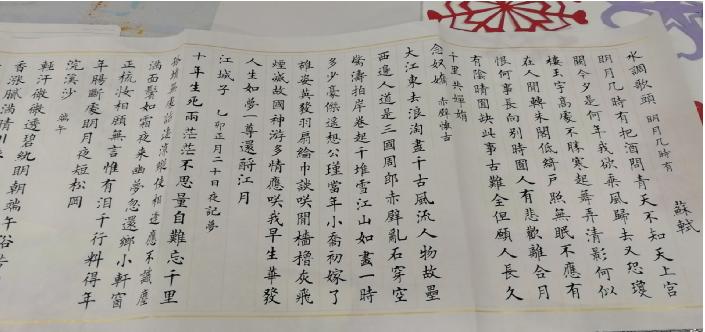 蘇軾
水調歌頭 明月几時有
明月几時有把酒問青天不知天上宮
闕今夕是何年我欲乘風歸去又恐瓊
樓玉宇高處不勝寒起舞弄清影何似
在人間轉朱閣低綺戶照無眠不應有
恨何事長向別時圓人有悲歡離合月
有陰晴圓缺此事古難全但願人長久
千里共嬋娟
念奴嬌 赤壁懷古
大江東去浪淘盡千古風流人物故壘
西邊人道是三國周郎赤壁亂石穿空
驚濤拍岸卷起千堆雪江山如畫一時
多少豪傑遙想公瑾當年小喬初嫁了
雄姿英發羽扇綸巾談咲間檣櫓灰飛
煙滅故國神游多情應咲我早生華發
人生如夢一尊還酹江月
江城子 乙卯正月二十日夜記夢
十年生死兩茫茫不思量自難忘千里
孤墳無處話淒涼縱使相逢應不識塵
滿面鬢如霜夜來幽夢忽還鄉小軒窗
正梳妝相顧無言惟有泪千行料得年
年腸斷處明月夜短松岡
浣溪沙 端午
輕汗微微透碧紈明朝端午浴芳
香漲膩滿晴川